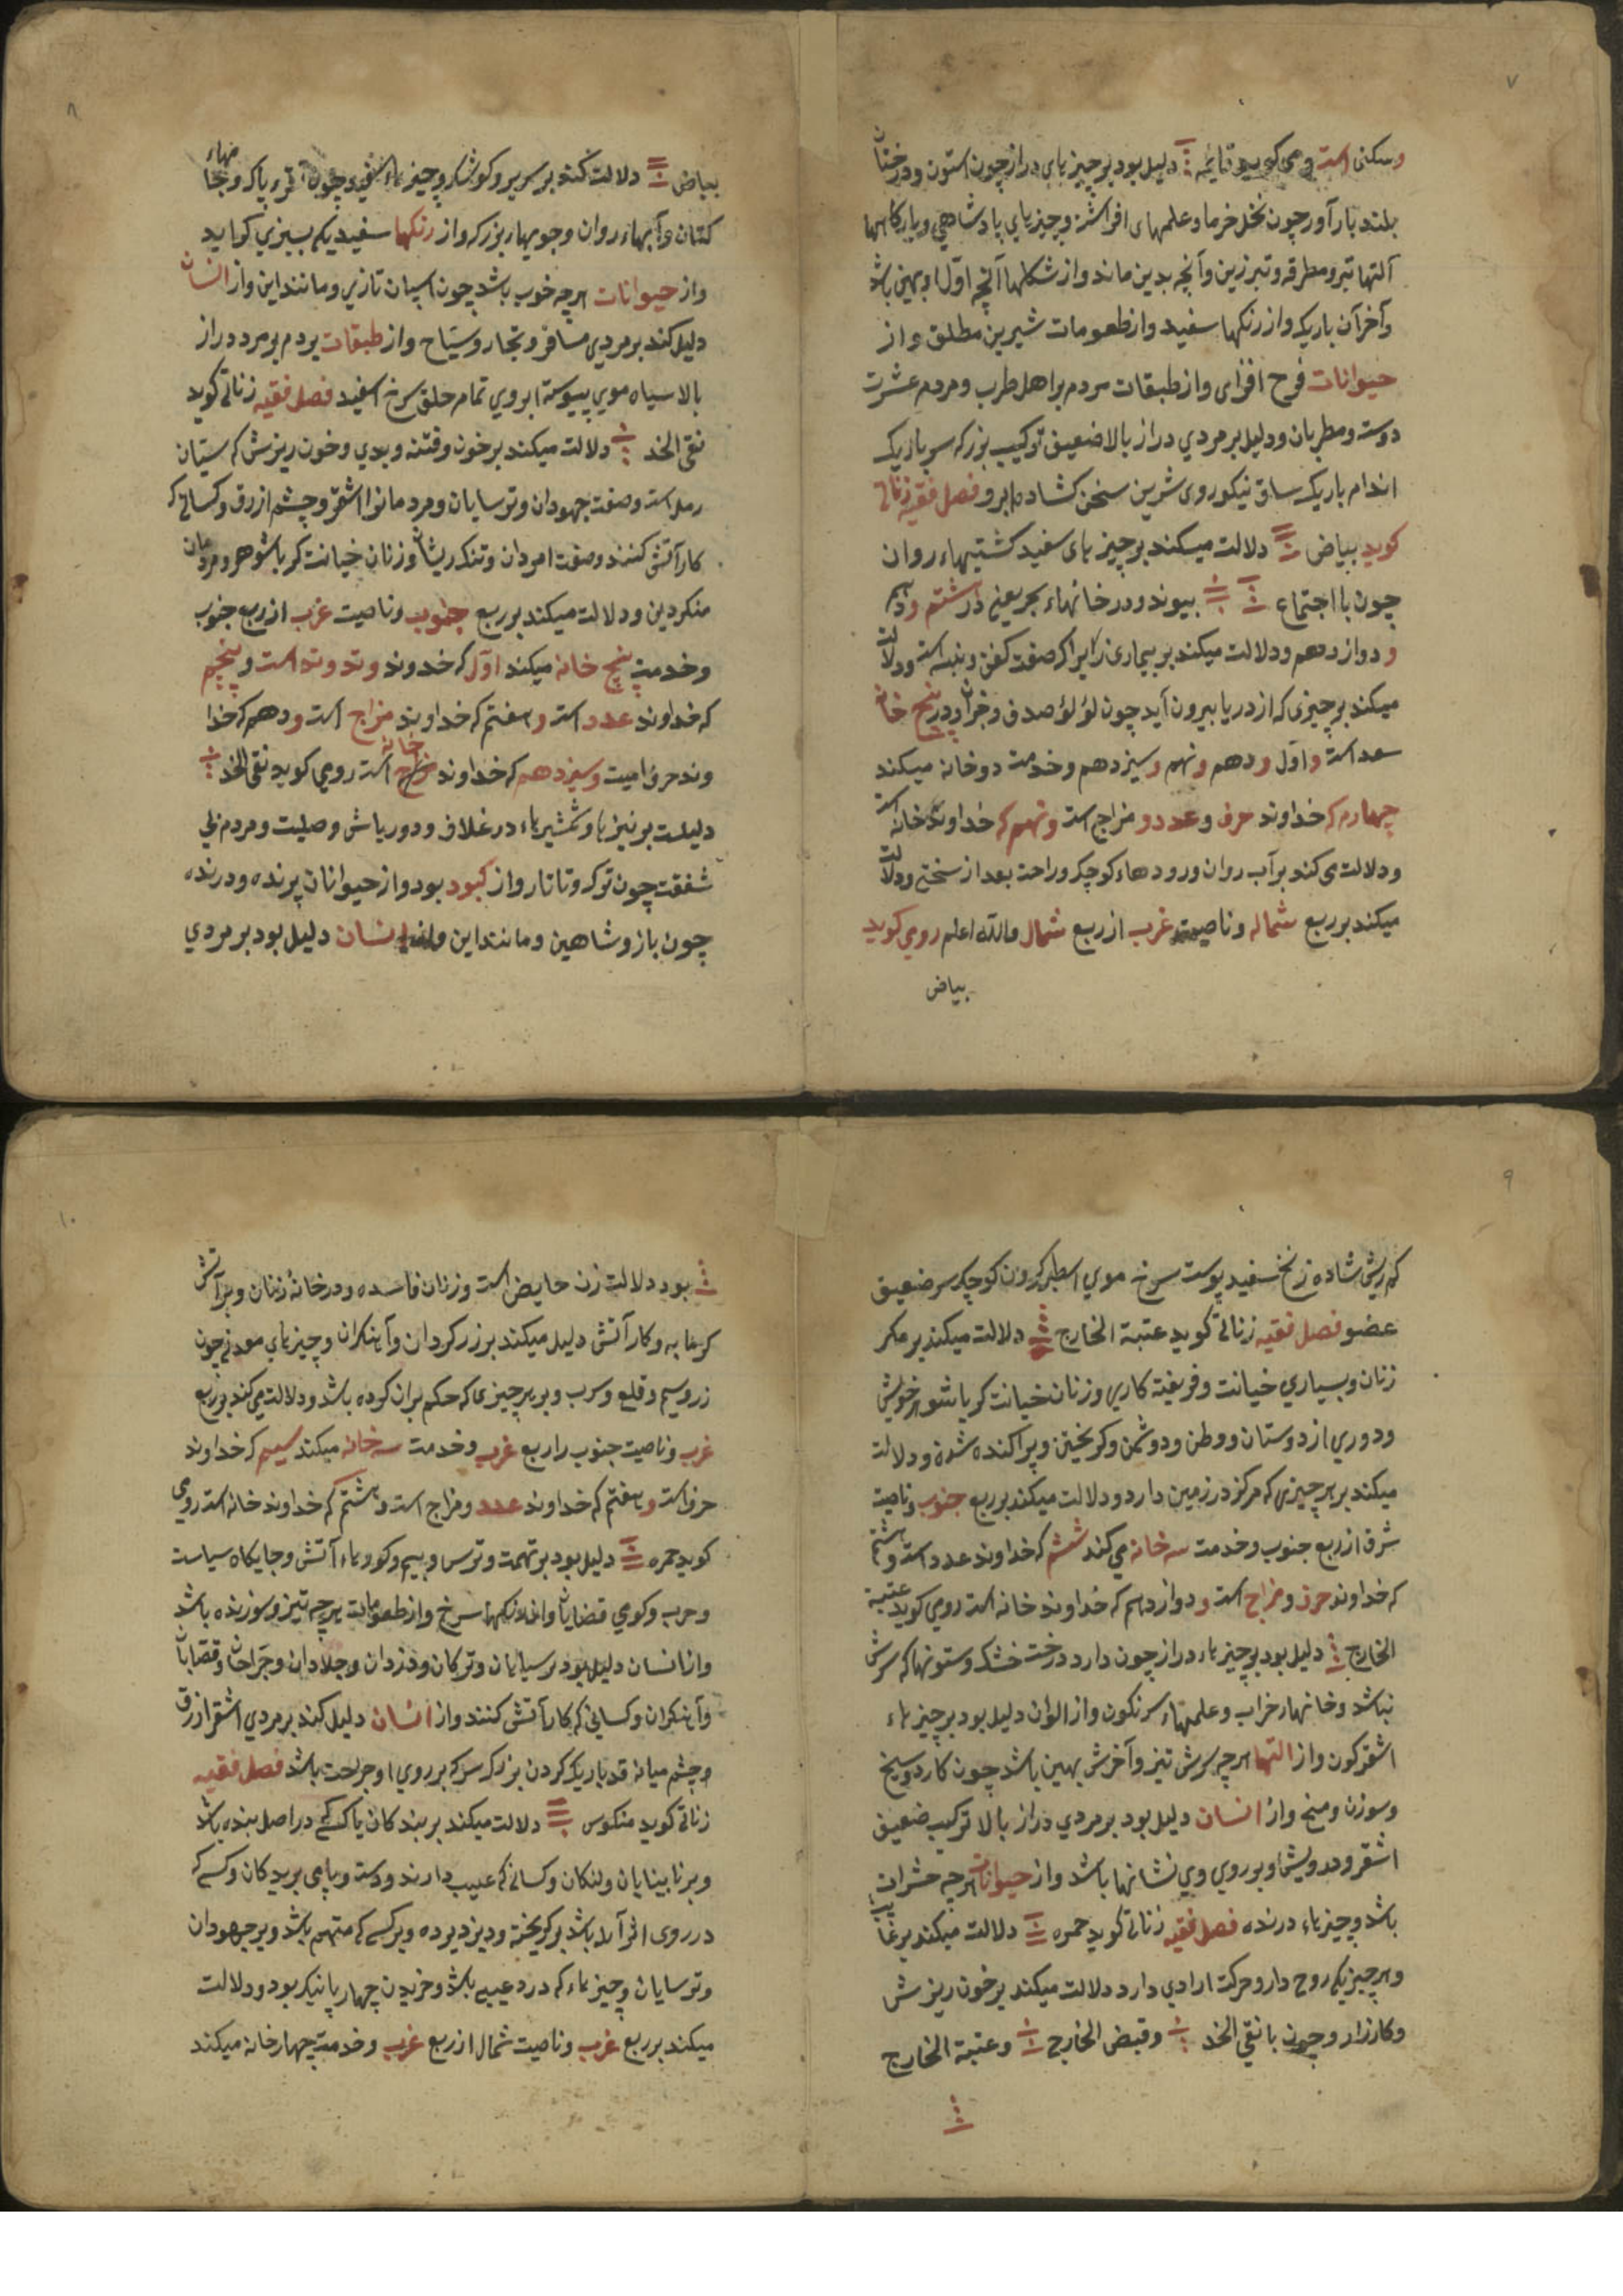 ۷
وسکنی است و می کوید قایمه دلیل بود بر چیزهای دراز چون استون و درختان
بلند بارآور چون نخل خرما و علمهای افراشته و چیزهای پادشاهی و بارکاهها
آلتها تبر و مطرقه و تبرزین و آنچه بدین ماند و از شکلها آنچه اوّل او پهین باشد
و آخر آن باریک و از رنکها سفید و از طعومات شیرین مطلق و از
حیوانات فرح افزای و از طبقات مردم بر اهل طرب و مردم عشرت
دوست و مطربان و دلیل بر مردی دراز بالا ضعیف ترکیب بزرک سر باریک
اندام باریک ساق نیکو روی شیرین سخن کشاده ابرو فصل فقیه زناتی
کوید بیاض دلالت میکند بر چیزهای سفید کشتیهاء روان
چون با اجتماع بیوند و در خانهاء بحر یعنی در هشتم و دهم
و دوازدهم و دلالت میکند بر بیماری زیرا که صفت کفن و پنبه است و دلالت
میکند بر چیزی که از دریا بیرون آید چون لؤلؤ صدف و در پنج خانه
سعد است و اوّل و دهم و نهم و سیزدهم و خدمت دو خانه میکند
چهارم که خداوند حرف و عدد و مزاج است و نهم که خداوند خانه است
و دلالت می کند بر آب روان و رودهاء کوچک و راحت بعد از سختی و دلالت
میکند بر ربع شماله و ناصیت غرب از ربع شمال والله اعلم رومی کوید
بیاض
۸
بیاض دلالت کند بر سریر و کوشک و چیزهاء سفید چون نقره پاک و جامهاء
کتان و آبهاء روان و جویهاء بزرک و از رنکها سفیدیکه بسبزی کراید
و از حیوانات هرچه خوب باشد چون اسپان تازی و مانند این و از انسان
دلیل کند بر مردی مسافر و تجار و سیّاح و از طبقات مردم بر مرد دراز
بالا سیاه موی پیوسته ابروی تمام خلق سرخ اسفید فصل فقیه زناتی کوید
نقی الخد دلالت میکند بر خون و فتنه و بدی و خون ریزش که ستان
رمل است و صفت جهودان و ترسایان و مردمانرا اشقر و چشم ازرق و کسانی که
کار آتش کنند و صفت امردان و تنک ریشان و زنان خیانت کر با شوهر و مردمان
منکر دین و دلالت میکند بر ربع جنوب و ناصیت غرب از ربع جنوب
و خدمت پنج خانه میکند اوّل که خدوند وتد وتد است و پنجم
که خداوند عدد است و هفتم که خداوند مزاج است و دهم که خدا
وند حرف است و سیزدهم که خداوند خانه است رومی کوید نقی الخد
دلیلست بر نیزها و شمشیرهاء در غلاف و دورباش و صلیت و مردم بی
شفقت چون ترک و تاتار و از کبود بود و از حیوانات پرنده و درنده
چون باز و شاهین و مانند این و از انسان دلیل بود بر مردی
۹
که ریش شاده زنخ سفید پوست سرخ موی اسطبر کردن کوچک سر ضعیف
عضو فصل فقیه زناتی کوید عتبة الخارج دلالت میکند بر مکر
زنان و بسیاری خیانت و فریفته کاری و زنان خیانت کر با شوهر خویش
و دوری از دوستان و وطن و دوشمن و کریختن و پراکنده شدن و دلالت
میکند بر هر چیزی که مرکز در زمین دارد و دلالت میکند بر ربع جنوب و ناصیت
شرق از ربع جنوب و خدمت سه خانه می کند ششم که خداوند عدد است و هشتم
که خداوند حرف و مزاج است و دوازدهم که خداوند خانه است رومی کوید عتبة
الخارج دلیل بود بر چیزهاء دراز چون دار و درخت خشک و ستونها که سرش
نباشد و خانهاء خراب و علمهاء سرنکون و از الوان دلیل بود بر چیزهاء
اشقر کون و از التها هرچه سرش تیز و آخرش پهین باشد چون کارد و سیخ
و سوزن و میخ و از انسان دلیل بود بر مردی دراز بالا ترکیب ضعیف
اشقر و درویش و بر روی وی نشانها باشد و از حیوانات هرچه حشرات
باشد و چیزهاء درنده فصل فقیه زناتی کوید حمره دلالت میکند بر
و هر چیزیکه روح دار و حرکت ارادی دارد دلالت میکند بر خون ریزش
و کارزار و چون با نقی الخد و قبض الخارج و عتبة الخارج
۱۰
بود دلالت زن حایض است و زنان فاسده و در خانهٔ زنان و بر آتش
کرمابه و کار آتش دلیل میکند بر زرکردان و آهنکران و چیزهای معدنی چون
زر و سیم و قلع و سرب و بر هر چیزی که حکم بران کرده باشد و دلالت می کند بر ربع
غرب و ناصیت جنوب را ربع غرب و خدمت سه خانه میکند سیم که خداوند
حرف است و هفتم که خداوند عدد و مزاج است و هشتم که خداوند خانه است رومی
کوید حمره دلیل بود بر تهمت و ترس و بیم و کورهاء آتش و جایکاه سیاست
و حرب و کوی قصابان و از رنکها سرخ و از طعومات هرچه تیز و سوزنده باشد
و از انسان دلیل بود بر سپاهیان و ترکان و دزدان و جلادان و جرّاحان و قصّابان
و آهنکران و کسانی که کار آتش کنند و از انسان دلیل کند بر مردی اشقر ازرق
چشم میانه قد باریک کردن بزرک سر که بر روی او جراحت باشد فصل فقیه
زناتی کوید منکوس دلالت میکند بر بندکان یا کسی که در اصل بنده باشد
و بر نابینایان و لنکان و کسانی که عیب دارند و دست و پای بریدکان و کسی که
در روی اثر آبله باشد بر کریخته و دیزدیده و بر کسی که متهم باشد و بر جهودان
و ترسایان و چیزهاء که درد عیبی باشد و خریدن چهارپا نیک بود و دلالت
میکند بر ربع غرب و ناصیت شمال از ربع غرب و خدمت چهار خانه میکند